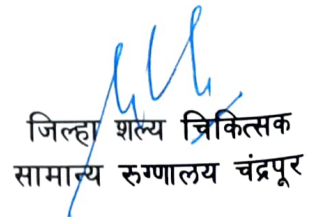 जिल्हा शल्य चिकित्सक
सामान्य रुग्णालय चंद्रपूर